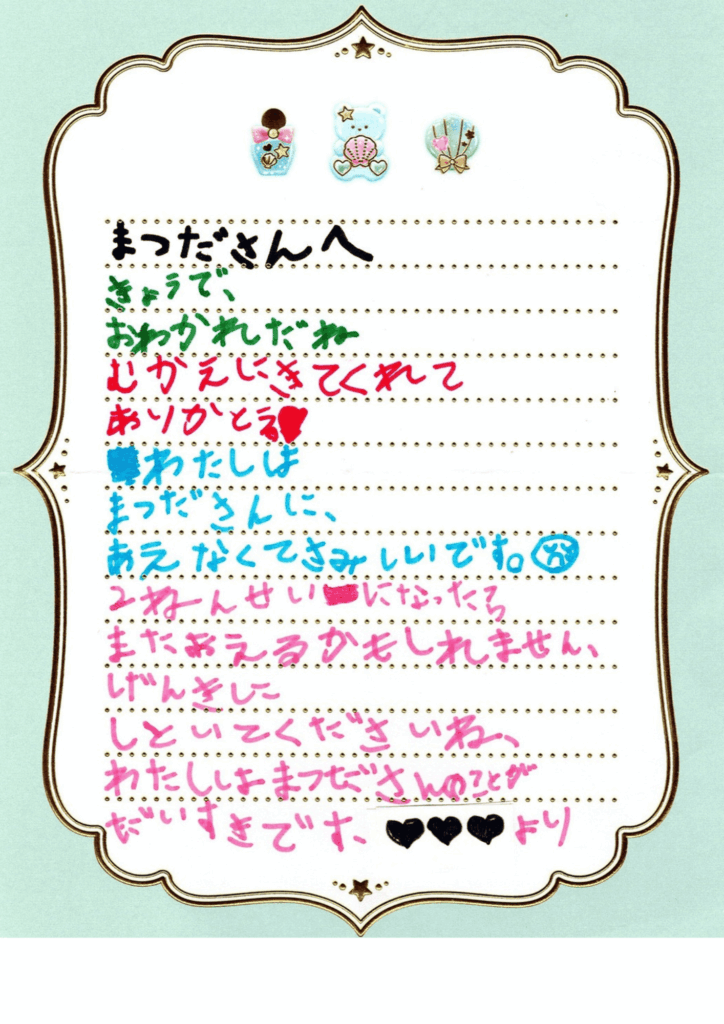 まつださんへ
きょうで、
おわかれだね
むかえにきてくれて
ありかとう
わたしは
まつださんに、
あえなくてさみしいです。
2ねーんせいになったら
またあえるかもしれません、
げんきしに
しといてくださいね、
わたししはまつださんのことが
だいすきです、
より